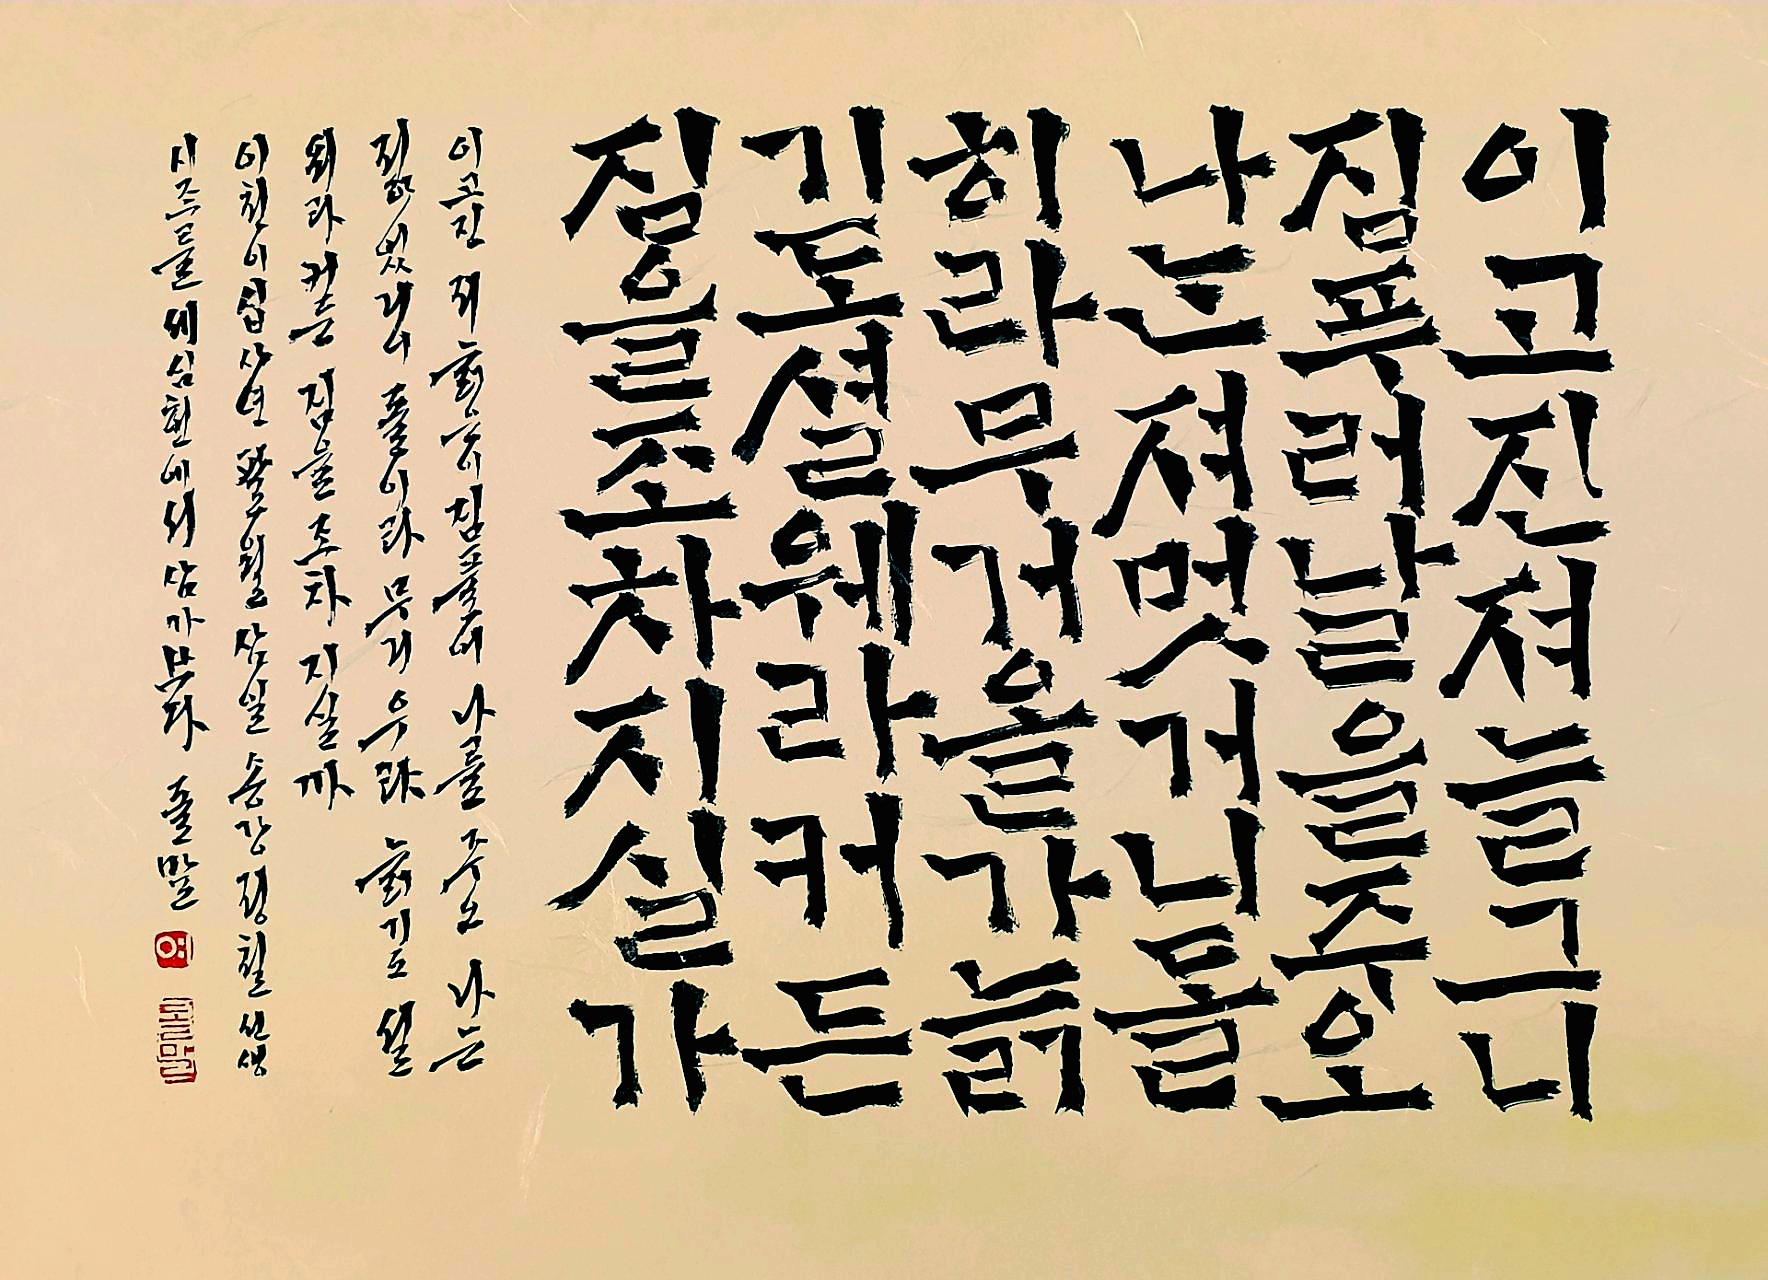 이고진져늘그니
짐푸러날을주오
나는져멋거니돌
히라무거올가늙
기도셜웨라커든
짐을조차지실가
이고 진 저 늙은이 짐 풀어 나를 주오 나는
젊었거니 돌이라 무거우랴 늙기도 설
워라커든 짐을 조차 지실까
이천이십사년 구월 삼일 송강 정철 선생
시조를 세심헌에서 삼가 쓰다 돌말
돌말